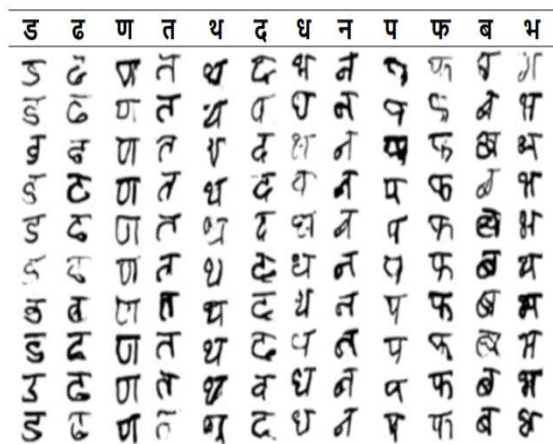 ड ढ ण त थ द ध न प फ ब भ
ड ढ ण त थ द भ न फ
ड ढ ण त थ ध न प फ ब भ
ड ढ ण त थ द न फ भ
ड ढ ण त थ द न प फ भ
ड ढ ण त द न प फ भ
ड ढ ण त थ द ध न प फ ब
ण त थ द न प फ ब भ
ड ढ ण त थ द न प फ भ
ड ढ ण त थ ध न प फ ब भ
ड ढ ण त द ध न प फ ब